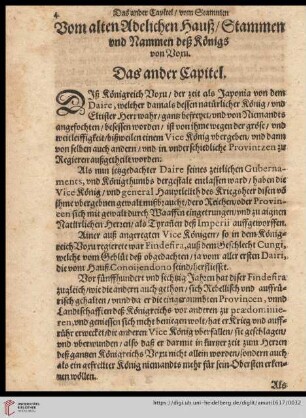 4. Das ander Capitel / vom Stammen
Vom alten Adelichen Hauß / Stammen
vnd Nammen deß Königs
von Voxu.
Das ander Capitel.
DIß Königreich Voxu / der zeit als Japonia von dem
Daire, welcher damals dessen natürlicher König / vnd
Eltister Herr wahr / gantz befreyet / vnd von Niemandts
angefochten / besessen worden / ist von ihme wegen der grösse / vnd
weitleiffigkeit / bißweilen einem Vice König vbergeben / vnd dann
von selben auch andern / vnd in vnderschiedliche Provintzen zu
Regieren außgetheilt worden:
Als nun jetzgedachter Daire seines zeitlichen Guberna-
ments, vnd Königthumbs dergestalt entlassen ward / haben die
Vice König / vnd general Hauptleith deß Kriegsheer disen vō
ihme vbergebnen gewalt mißbraucht / dero Reichen / oder Provin-
tzen sich mit gewalt durch Waaffen eingetrungen / vnd zu aignen
Natürlichen Herren / als Tyrañen deß Imperii auffgeworffen.
Ainer auß angeregten Vice Königen / so in dem König-
reich Voxu regierete war Findefira, auß dem Geschlecht Cungi,
welche vom Geblüt deß obgedachten / ja vom aller ersten Dairi,
die vom Hauß Conoijendono sendt / herfliesset.
Vor fünffhundert vnd sechtzig Jahren hat diser Findefira
zugleich / wie die andern auch gethon / sich Rebellisch vnd auffrü-
risch gehalten / vnnd da er die eingenommen Provincen, vnnd
Landschafften deß Königreichs vor anderen zu prædominie-
ren, vnd gemissen sich nicht benügen wolt / hat er Krieg vnd auff-
ruhr erweckt / die anderen Vice König vberfallen / sie geschlagen /
vnd vberwunden / also daß er darmit in kurtzer zeit zum Herren
deß gantzen Königreichs Voxu nicht allein worden / sondern auch
als ein gefreyter König niemandts mehr für sein Obersten erken-
nen wöllen.
Als
https://digi.ub.uni-heidelberg.de/diglit/amati1617/0032